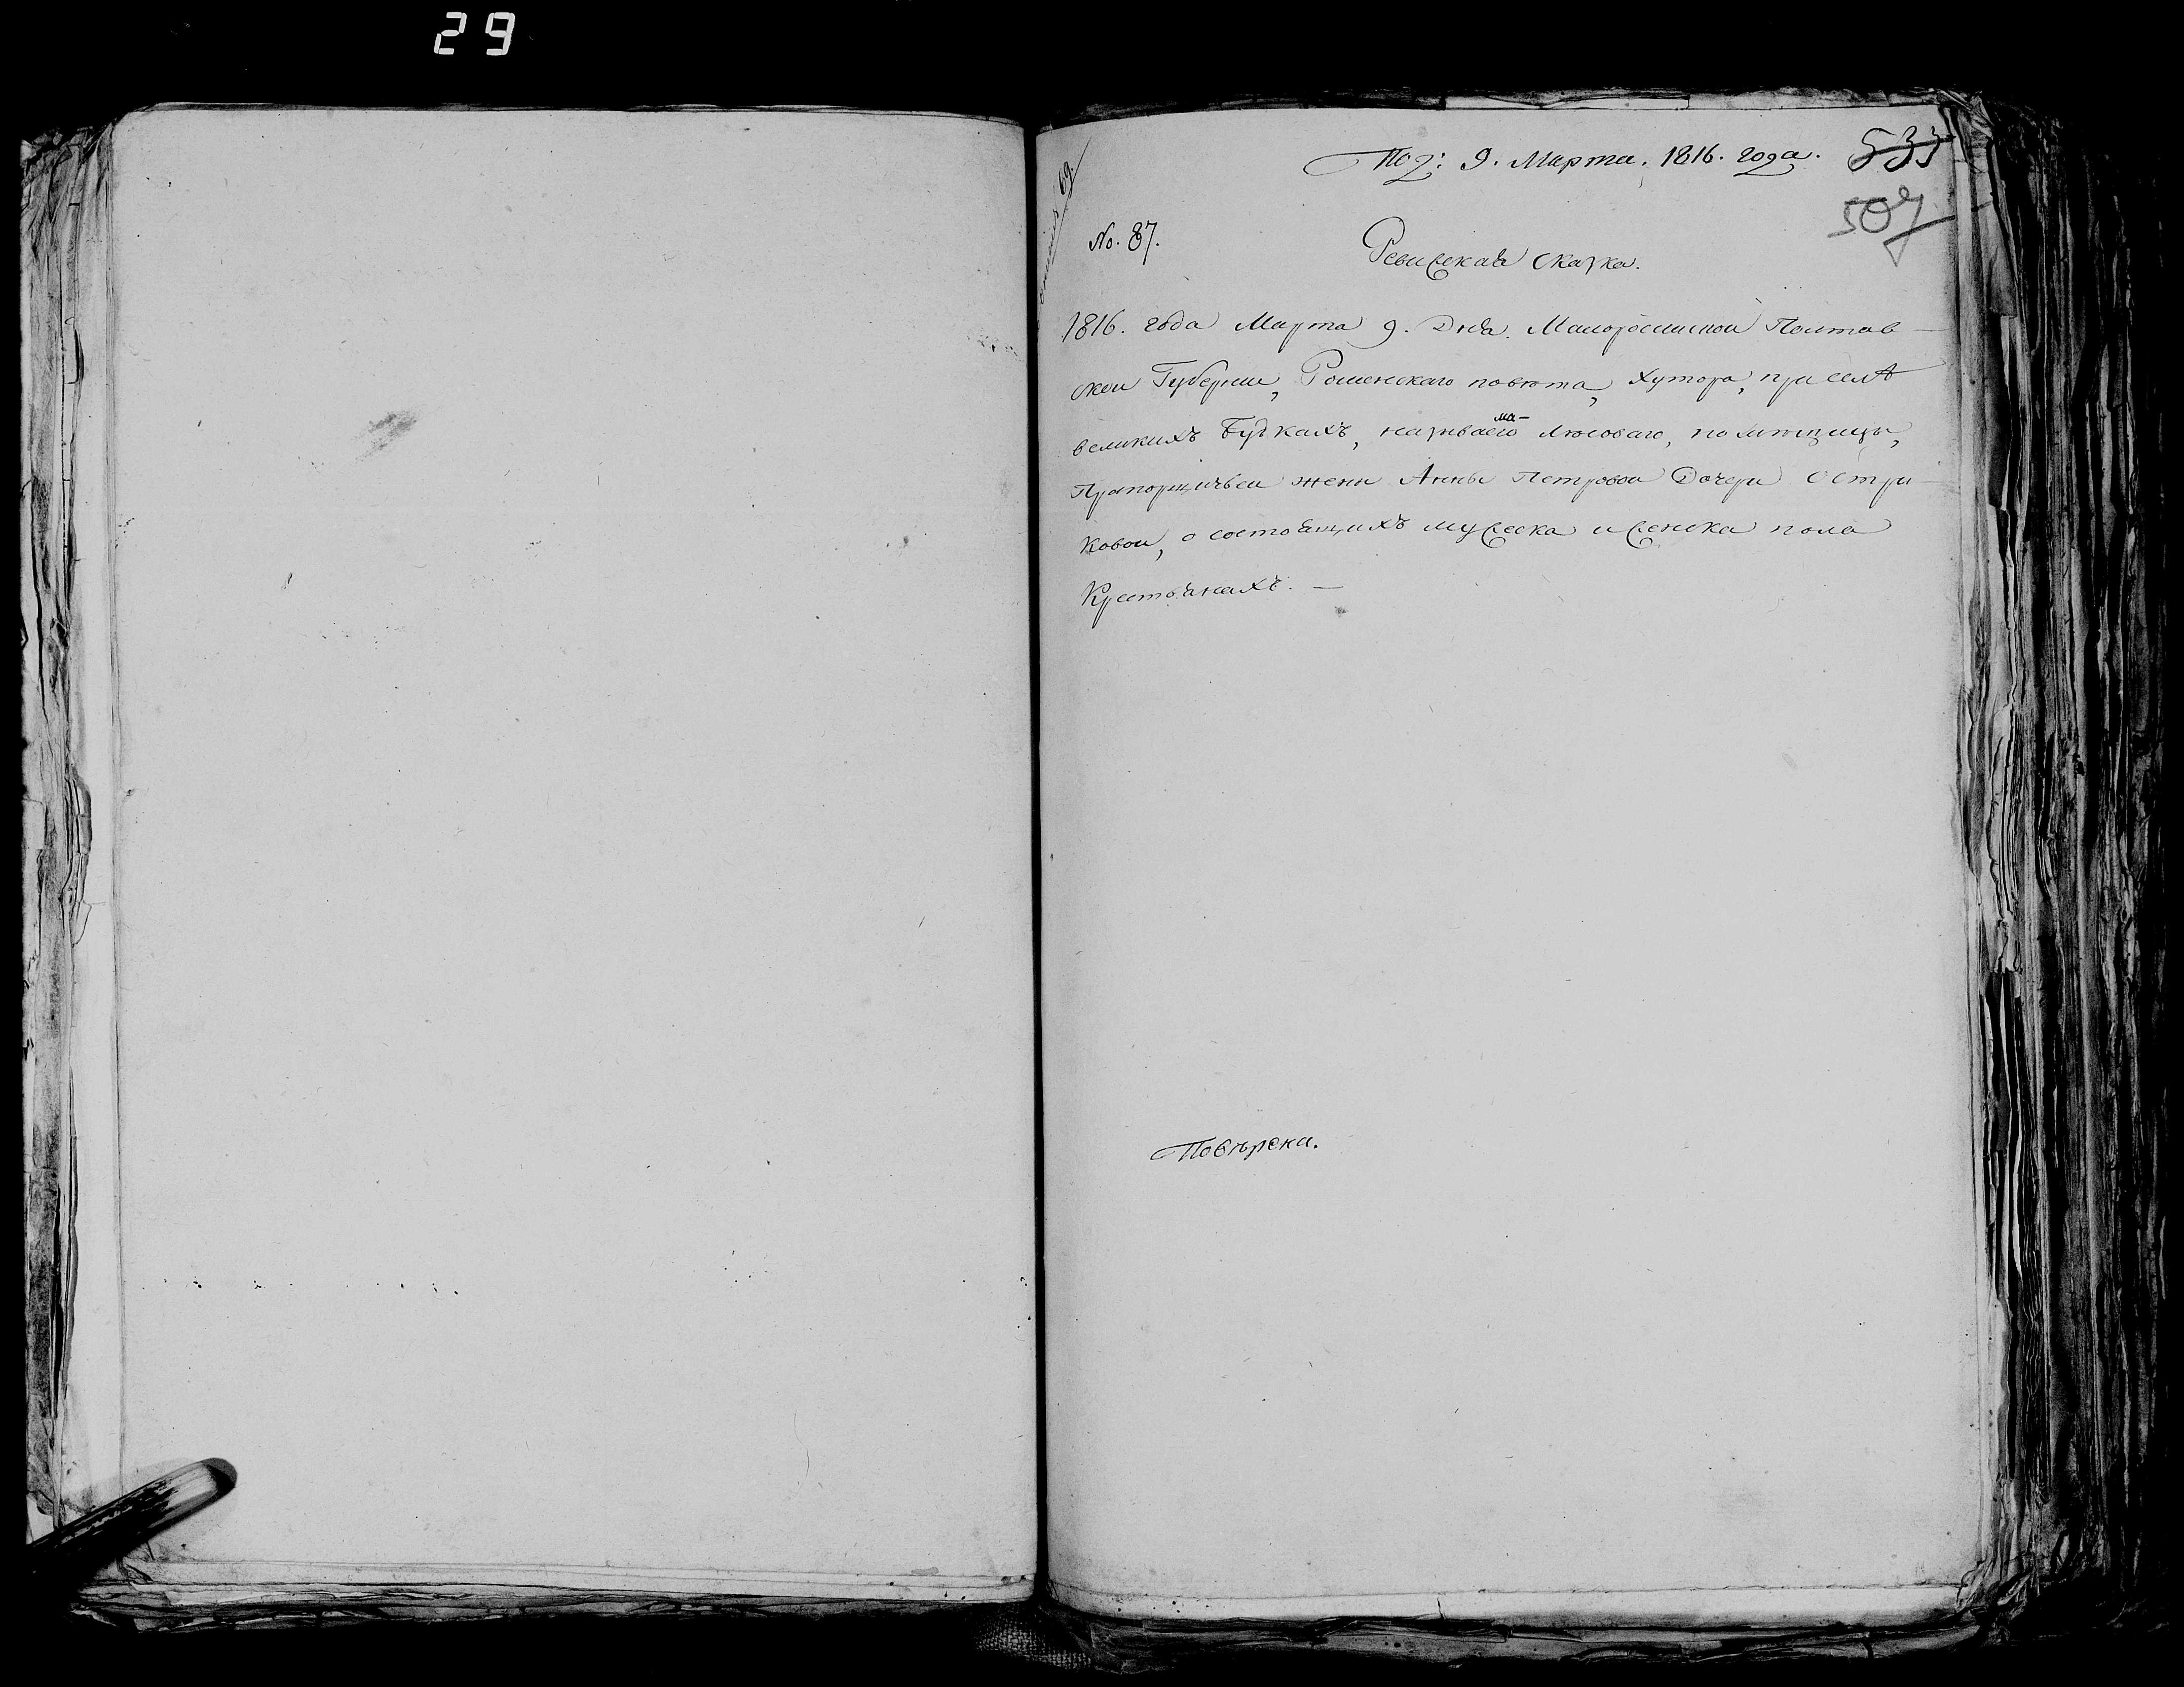 29
По2: 9. Марта. 1816. года.
533
507
69
No. 87.
Ревижская сказка.
1816. года Марта 9. Дня. Малоросииской Полтав-
ской Губернии, Роменскаго повѣта, Хутора, при селѣ
великихъ Будкахъ, называемаго Лисоваго, помѣщицы,
Прапорщичьей жены Анны Петровой Дочери Остри-
ковой, о состоящихъ мужеска и женска пола
Крестьянахъ. —
Повѣрена.